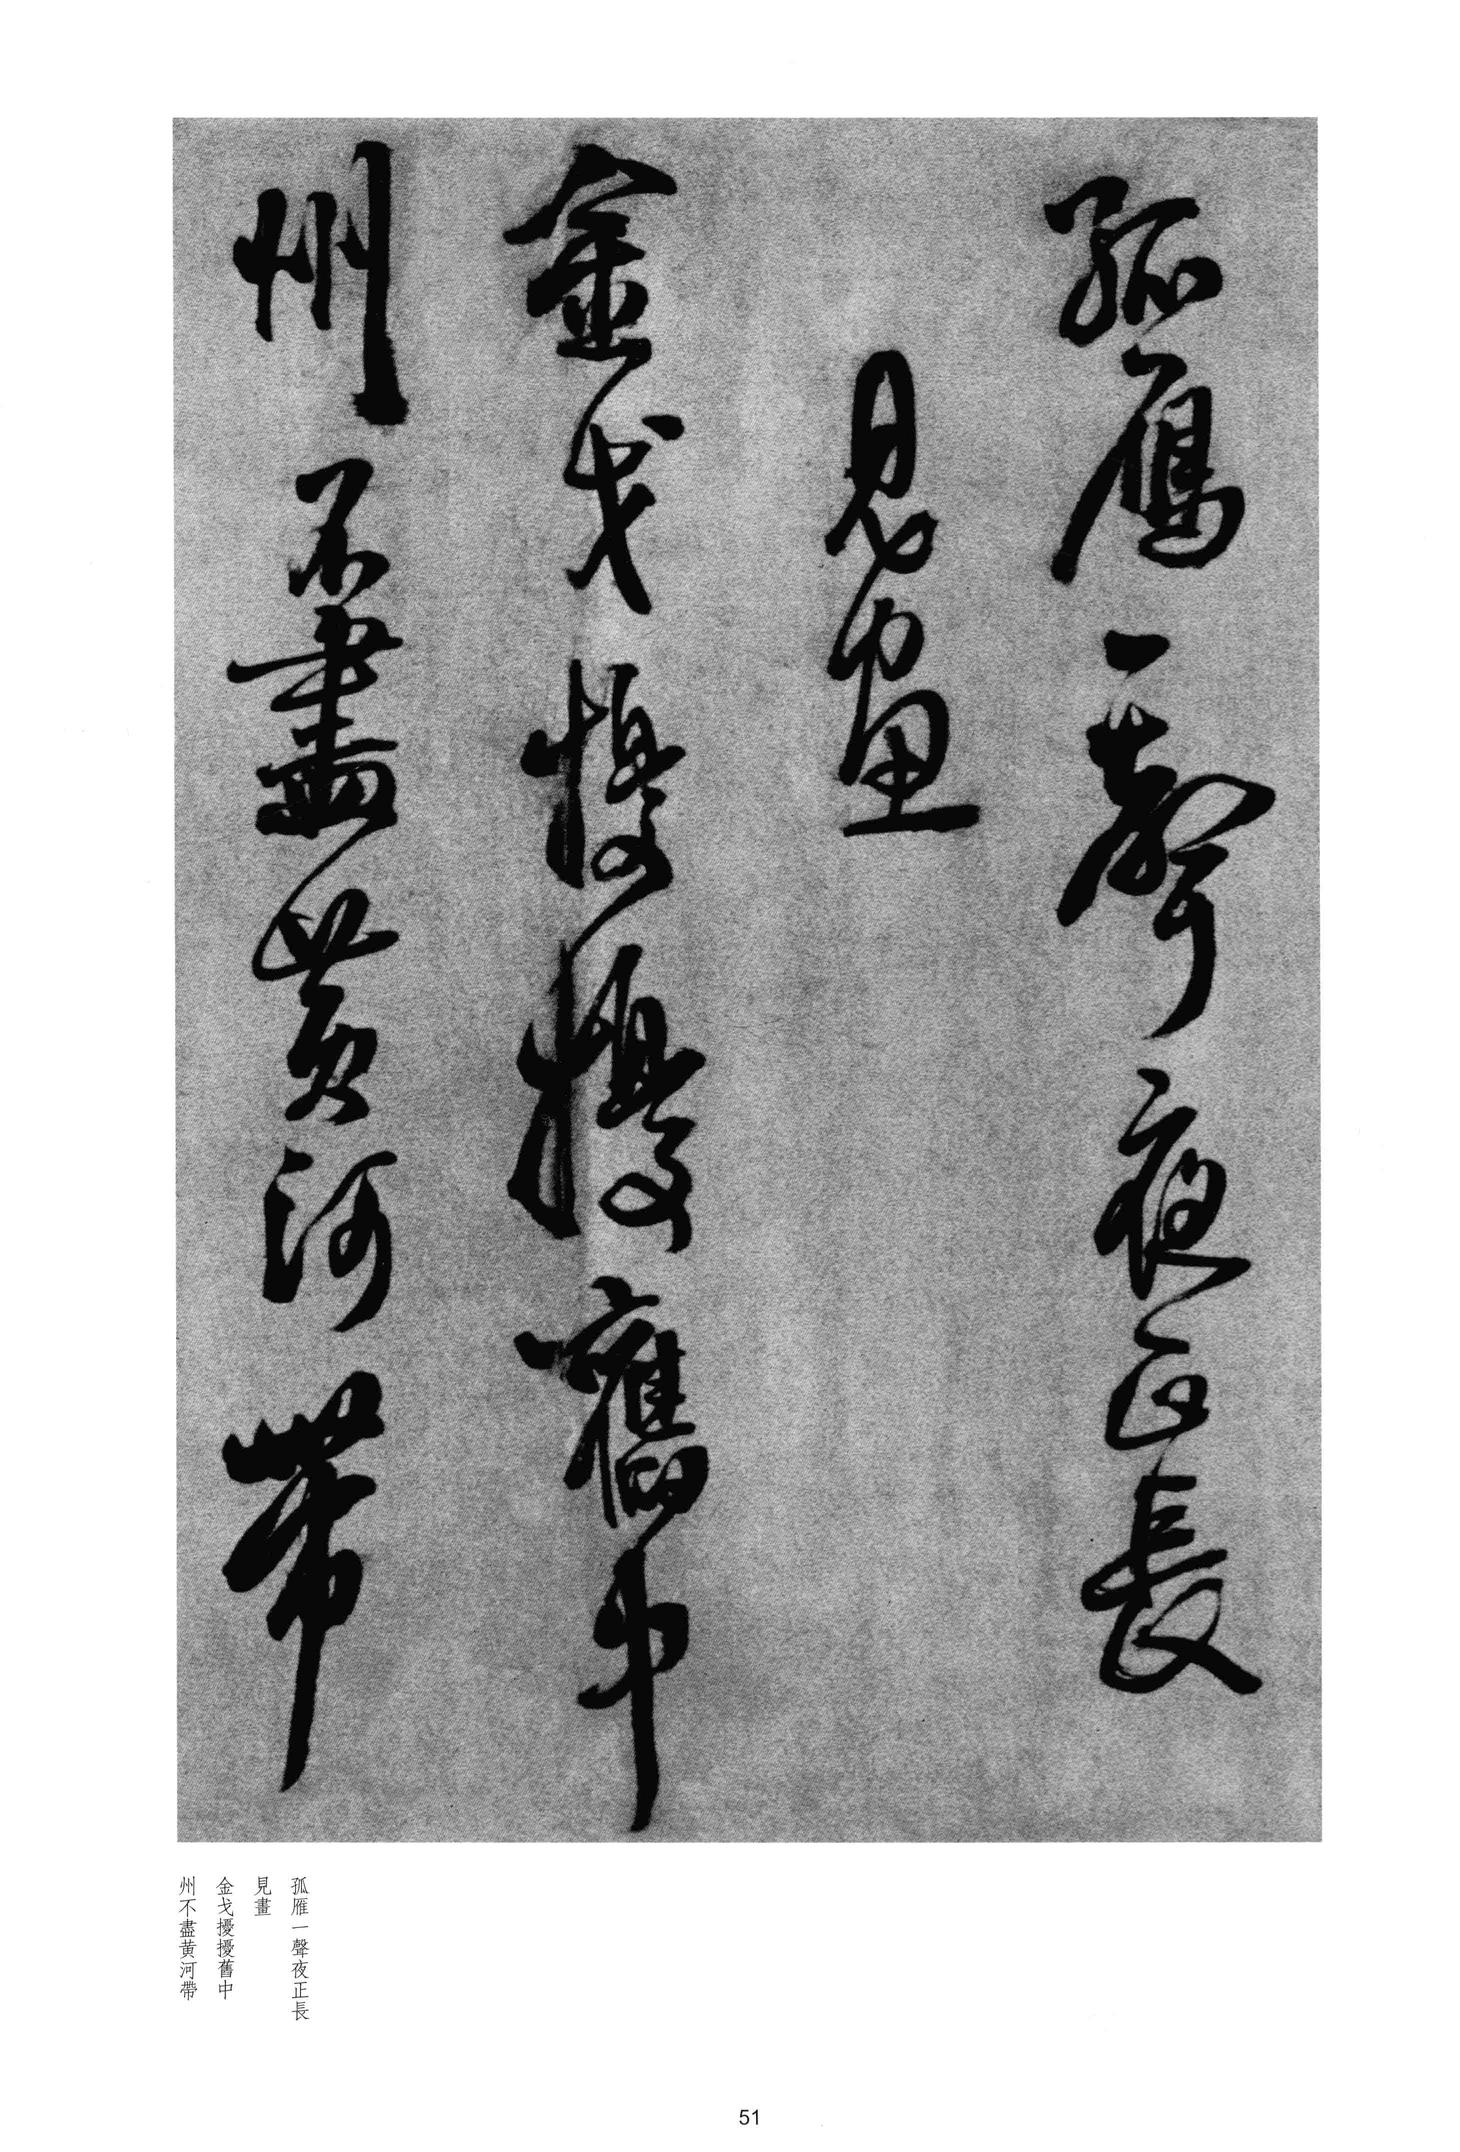 孤雁一聲夜正長
見畫
金戈擾擾舊中
州不盡黄河帶
孤雁一聲夜正長
見畫
金戈擾擾舊中
州不盡黄河帶
51